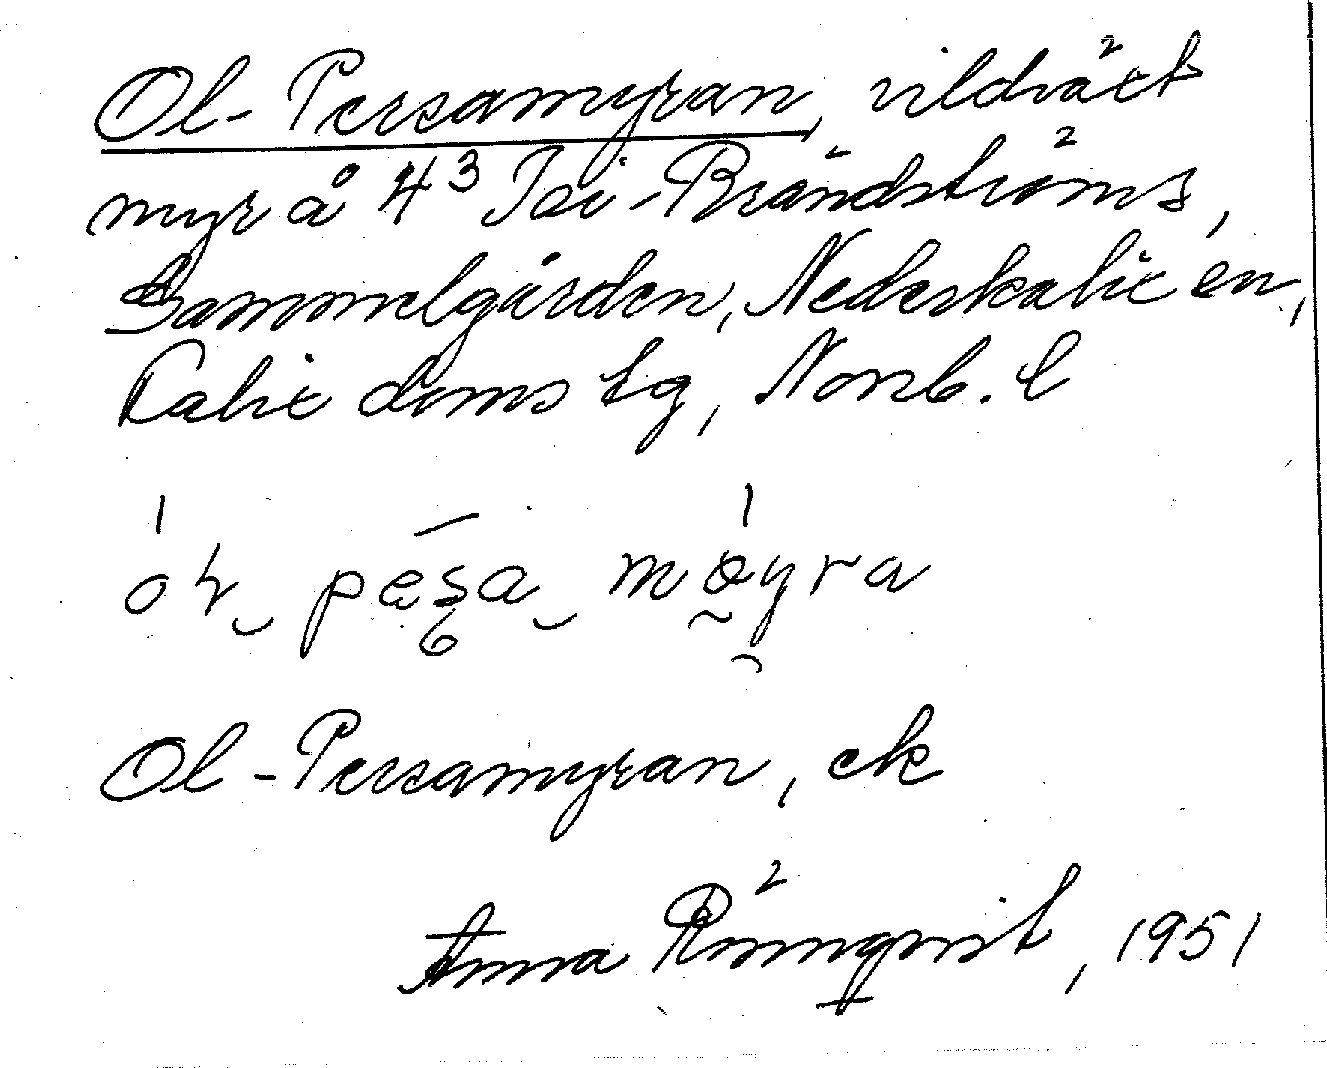 Ol-Persamyran, vildväxt
myr å 4³ Joi-Brändströms,
Gammelgården, Nederkalix en,
Kalix doms tg, Norrb. l
Ol-Persamyran, ek
Anna Rönnqvist, 1951